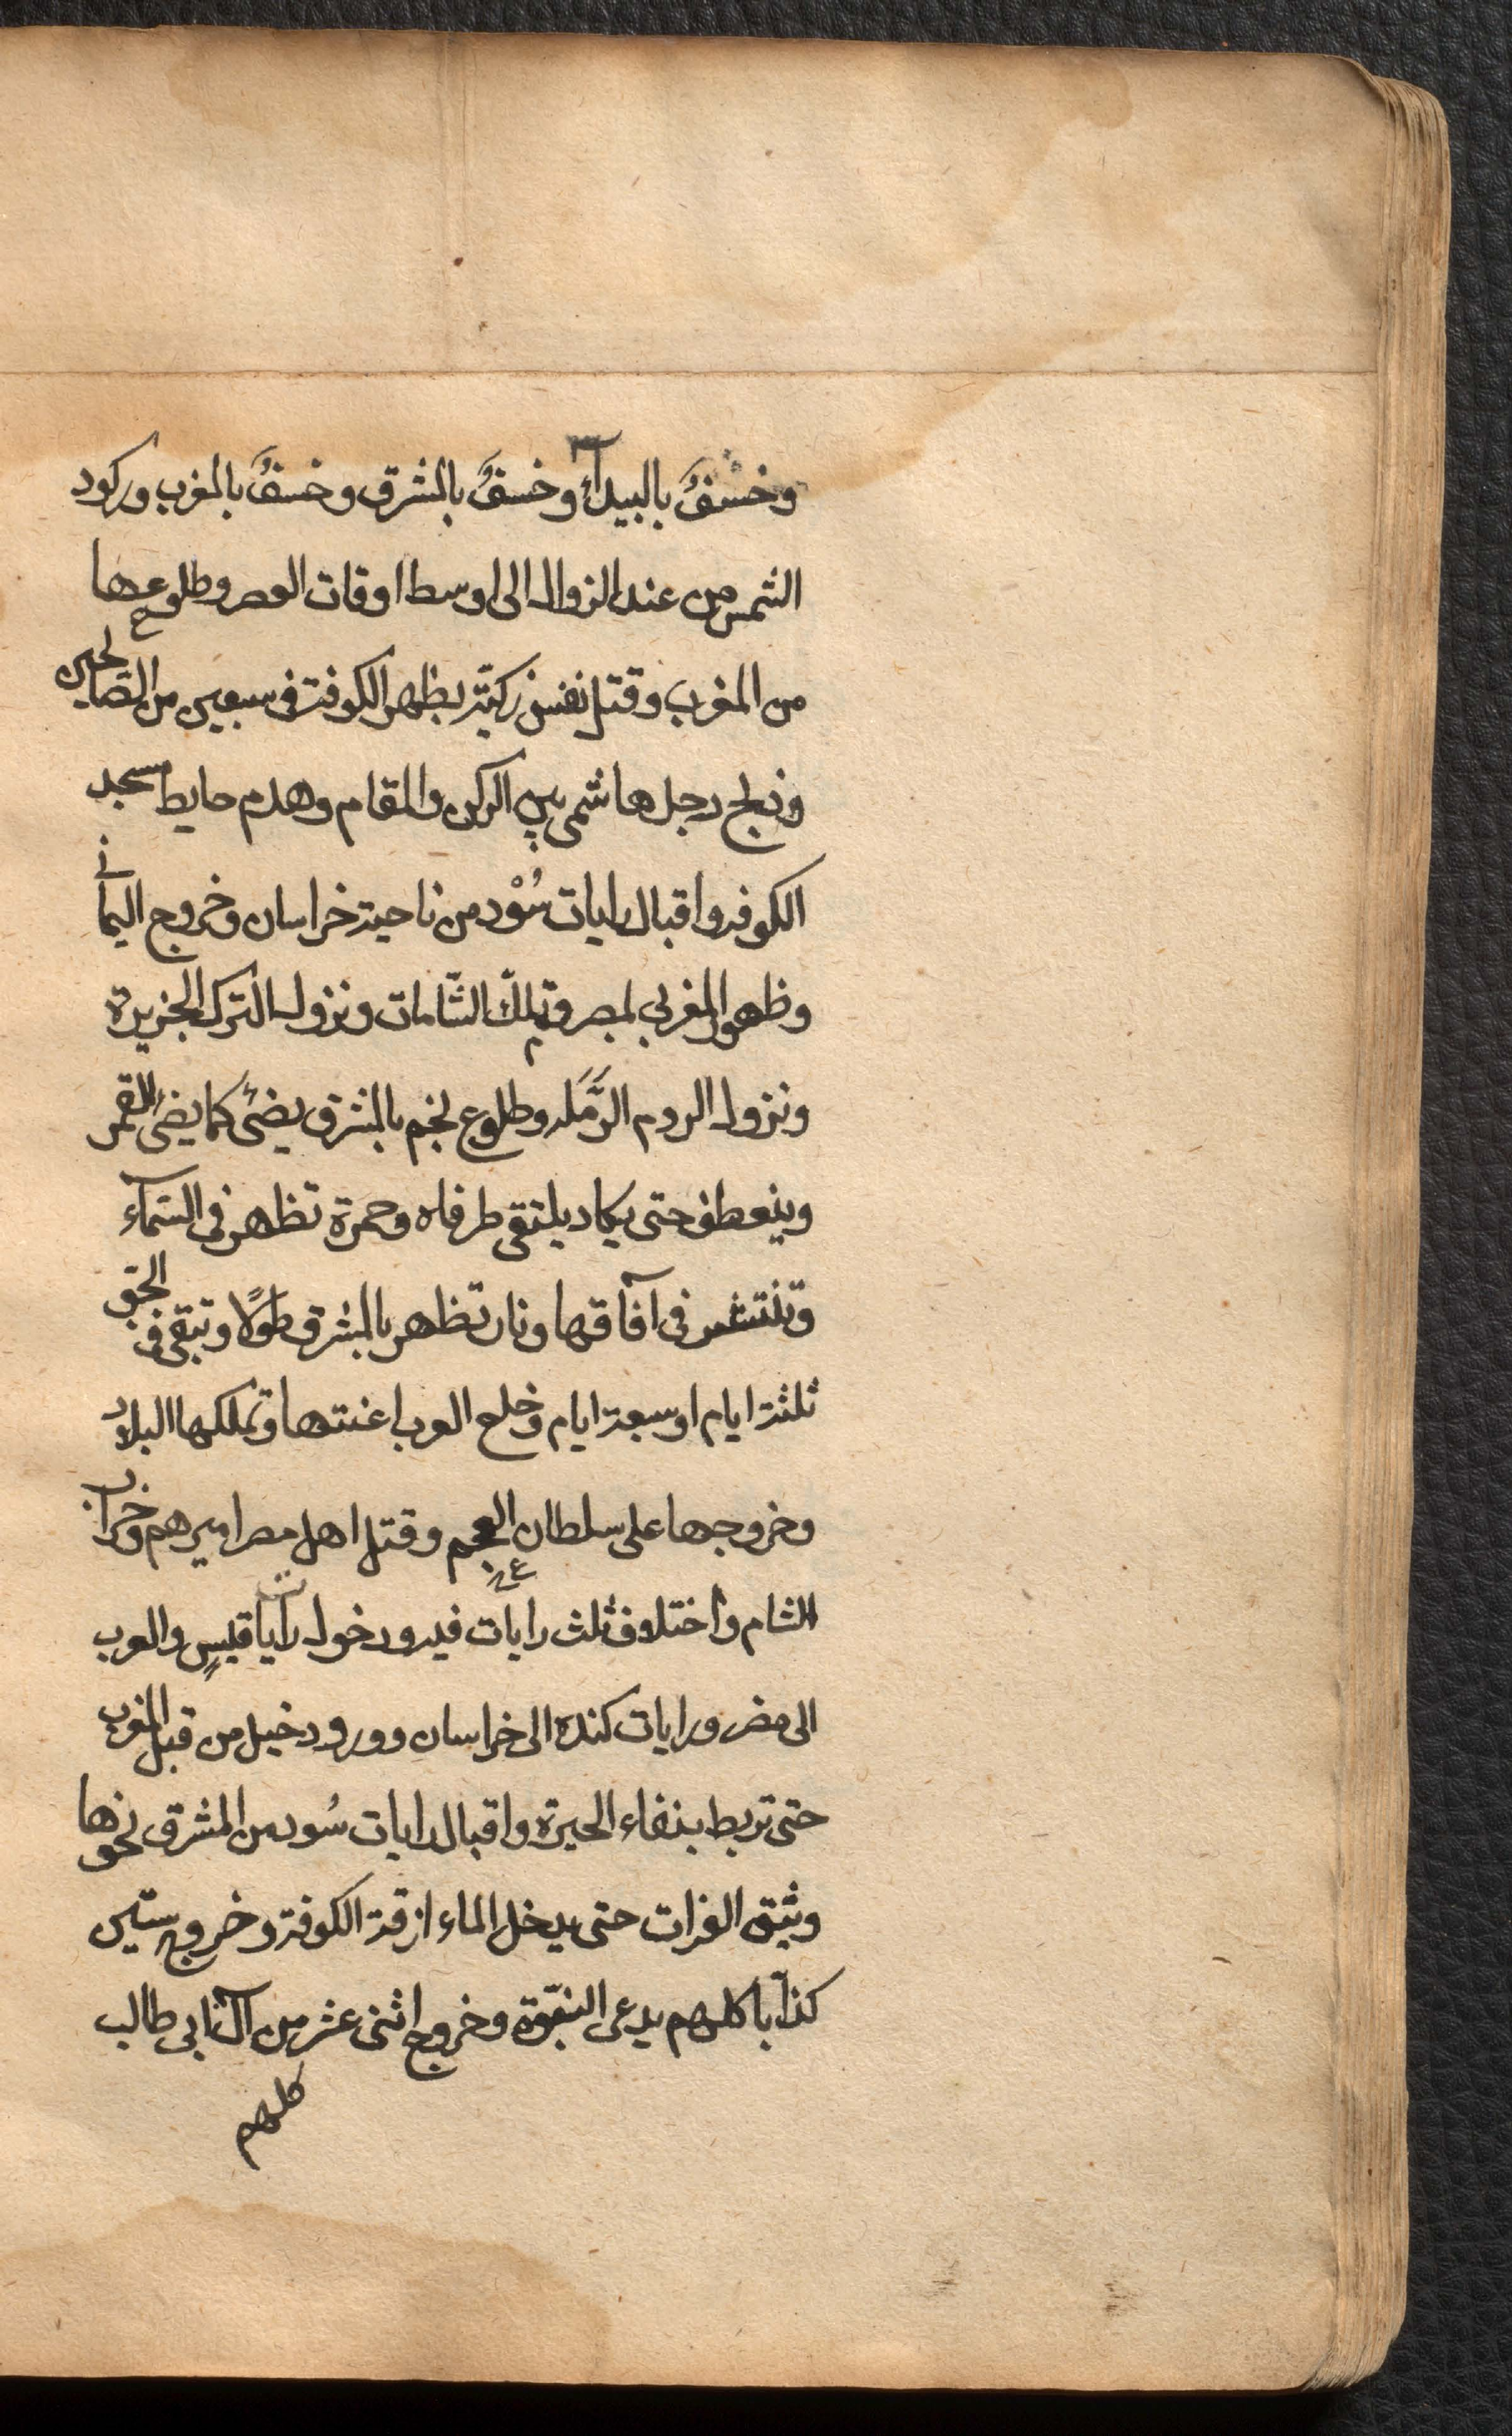 وخسْفٌ بالبيدآء وخسفٌ بالمشرق وخسفٌ بالمغرب وركود
الشمس من عند الزوال الى اوسط اوقات العصر وطلوعها
من المغرب وقتل نفس زكيّة بظهر الكوفة فى سبعين من الصالحين
وذبح رجل هاشمى بين الركن والمقام وهدم حايط مسجد
الكوفه واقبال رايات سُوْد من ناحية خراسان وخروج اليمانى
وظهور المغربي بمصر وتملك الشّامات ونزول الترك الجزيرة
ونزول الروم الرَّمَله وطلوع نجم بالمشرق يضئ كما يضئ القمر
وينعطف حتى يكاد يلتقى طرفاه وحمرة تظهر فى السّمآء
وتنتشر فى آفاقها ونار تظهر بالمشرق طولًا وتبقى فى الجّو
ثلثة ايام او سبعة ايام وخلع العرب اعنتها وتملكها البلاد
وخروجها على سلطان العجم وقتل اهل مصر اميرهم وخراب
الشام واختلاف ثلث رايات فيه ودخول رآيات قيسٍ والعرب
الى مصر ورايات كنده الى خراسان وورود خيل من قبل المغرب
حتى تربط بفناء الحيرة واقبال رايات سُود من المشرق نحوها
وبثق الفرات حتى يدخل الماء ازقة الكوفة وخروج ستّين
كذّابا كلهم يدعى النبّوة وخروج اثنى عشر من آل ابى طالب
كلهم